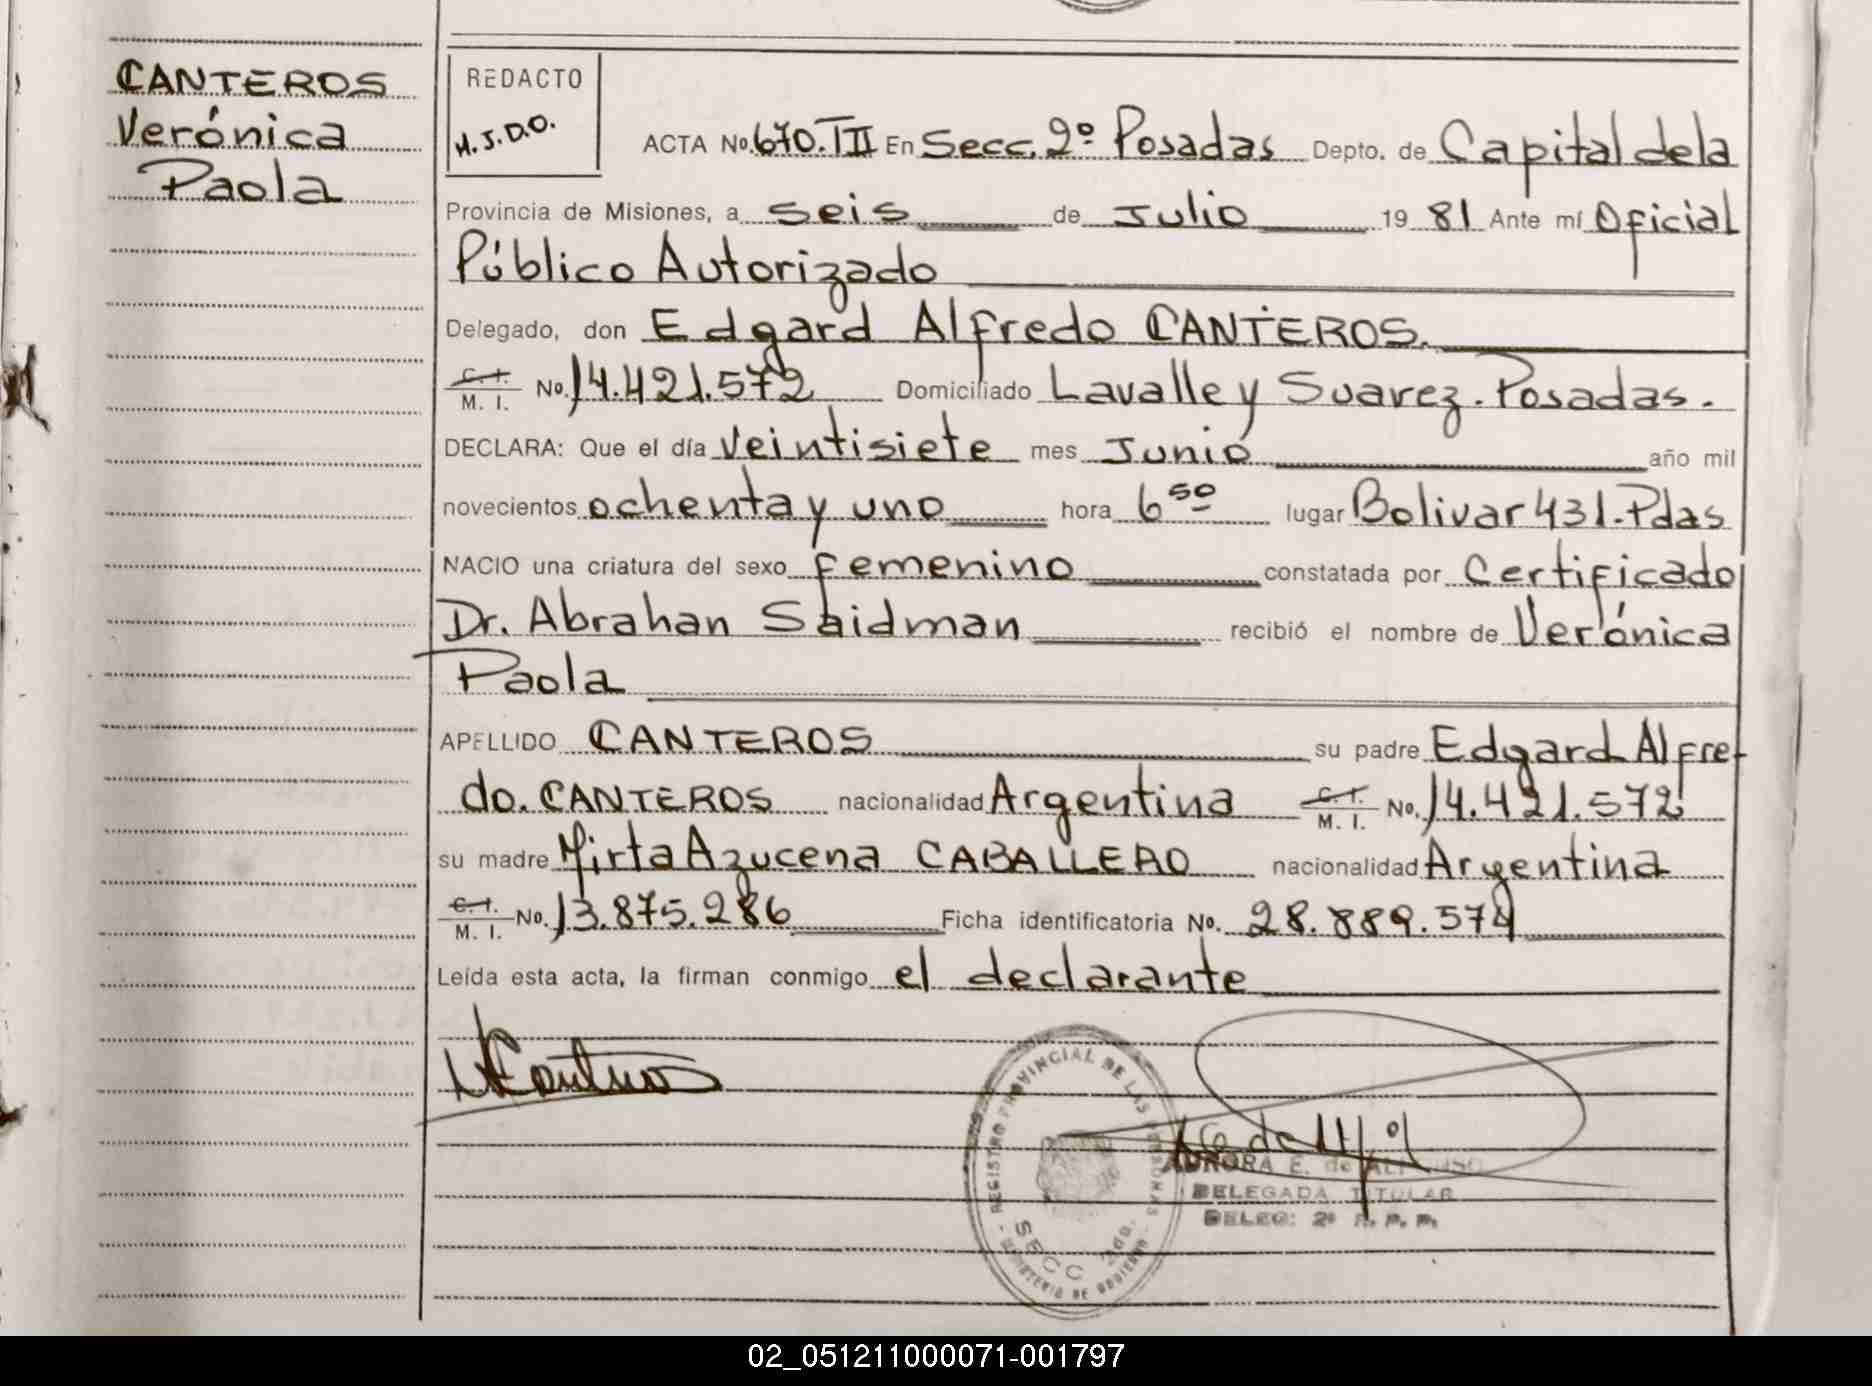 CANTEROS
Verónica
Paola
REDACTO
M.J.D.O.
ACTA No. 670. TII En Secc. 2º Posadas Depto. de Capital dela
Provincia de Misiones, a seis de Julio 19 81 Ante mí Oficial
Público Autorizado
Delegado, don Edgard Alfredo CANTEROS.
C. I. M. I. No. 14.421.572 Domiciliado Lavalle y Suarez. Posadas.
DECLARA: Que el día veintisiete mes Junio año mil
novecientos ochenta y uno hora 6 50 lugar Bolivar 431. Pdas
NACIO una criatura del sexo femenino constatada por Certificado
Dr. Abrahan Saidman recibió el nombre de Verónica
Paola
APELLIDO CANTEROS su padre Edgard Alfre
do. CANTEROS nacionalidad Argentina C. I. M. I. No. 14.421.572
su madre Mirta Azucena CABALLERO nacionalidad Argentina
C. I. M. I. No. 13.875.286 Ficha identificatoria No. 28.889.574
Leída esta acta, la firman conmigo el declarante
REGISTRO PROVINCIAL DE LAS PERSONAS
SECC 2da.
MINISTERIO DE GOBIERNO
AURORA E. de
DELEGADA TITULAR
DELEG: 2ª
02_051211000071-001797